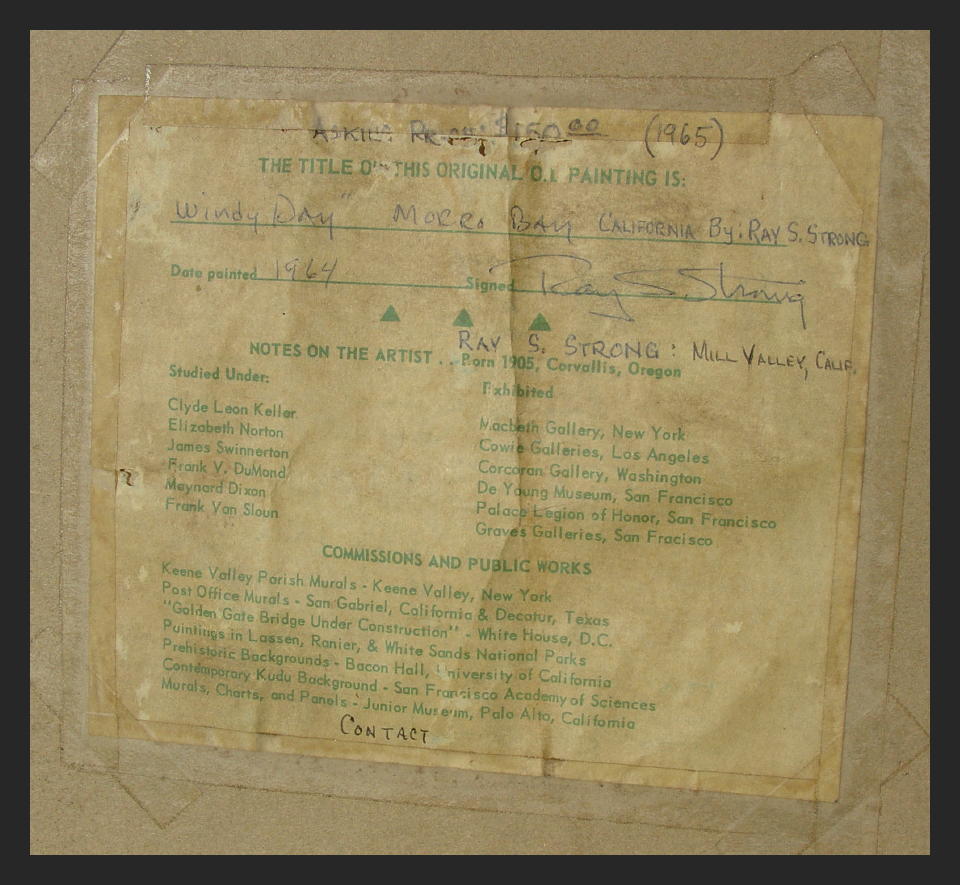 ASKING PRICE: $150.00 (1965)
THE TITLE OF THIS ORIGINAL OIL PAINTING IS:
"Windy Day" MORRO BAY CALIFORNIA By: RAY S. STRONG
Date painted 1964 Signed Ray S. Strong
RAY S. STRONG: MILL VALLEY, CALIF.
NOTES ON THE ARTIST . . Born 1905, Corvallis, Oregon
Studied Under:
Clyde Leon Keller
Elizabeth Norton
James Swinnerton
Frank V. DuMond
Maynard Dixon
Frank Van Sloun
Exhibited
Macbeth Gallery, New York
Cowie Galleries, Los Angeles
Corcoran Gallery, Washington
De Young Museum, San Francisco
Palace Legion of Honor, San Francisco
Graves Galleries, San Fracisco
COMMISSIONS AND PUBLIC WORKS
Keene Valley Parish Murals - Keene Valley, New York
Post Office Murals - San Gabriel, California & Decatur, Texas
"Golden Gate Bridge Under Construction" - White House, D.C.
Paintings in Lassen, Ranier, & White Sands National Parks
Prehistoric Backgrounds - Bacon Hall, University of California
Contemporary Kudu Background - San Francisco Academy of Sciences
Murals, Charts, and Panels - Junior Museum, Palo Alto, California
CONTACT